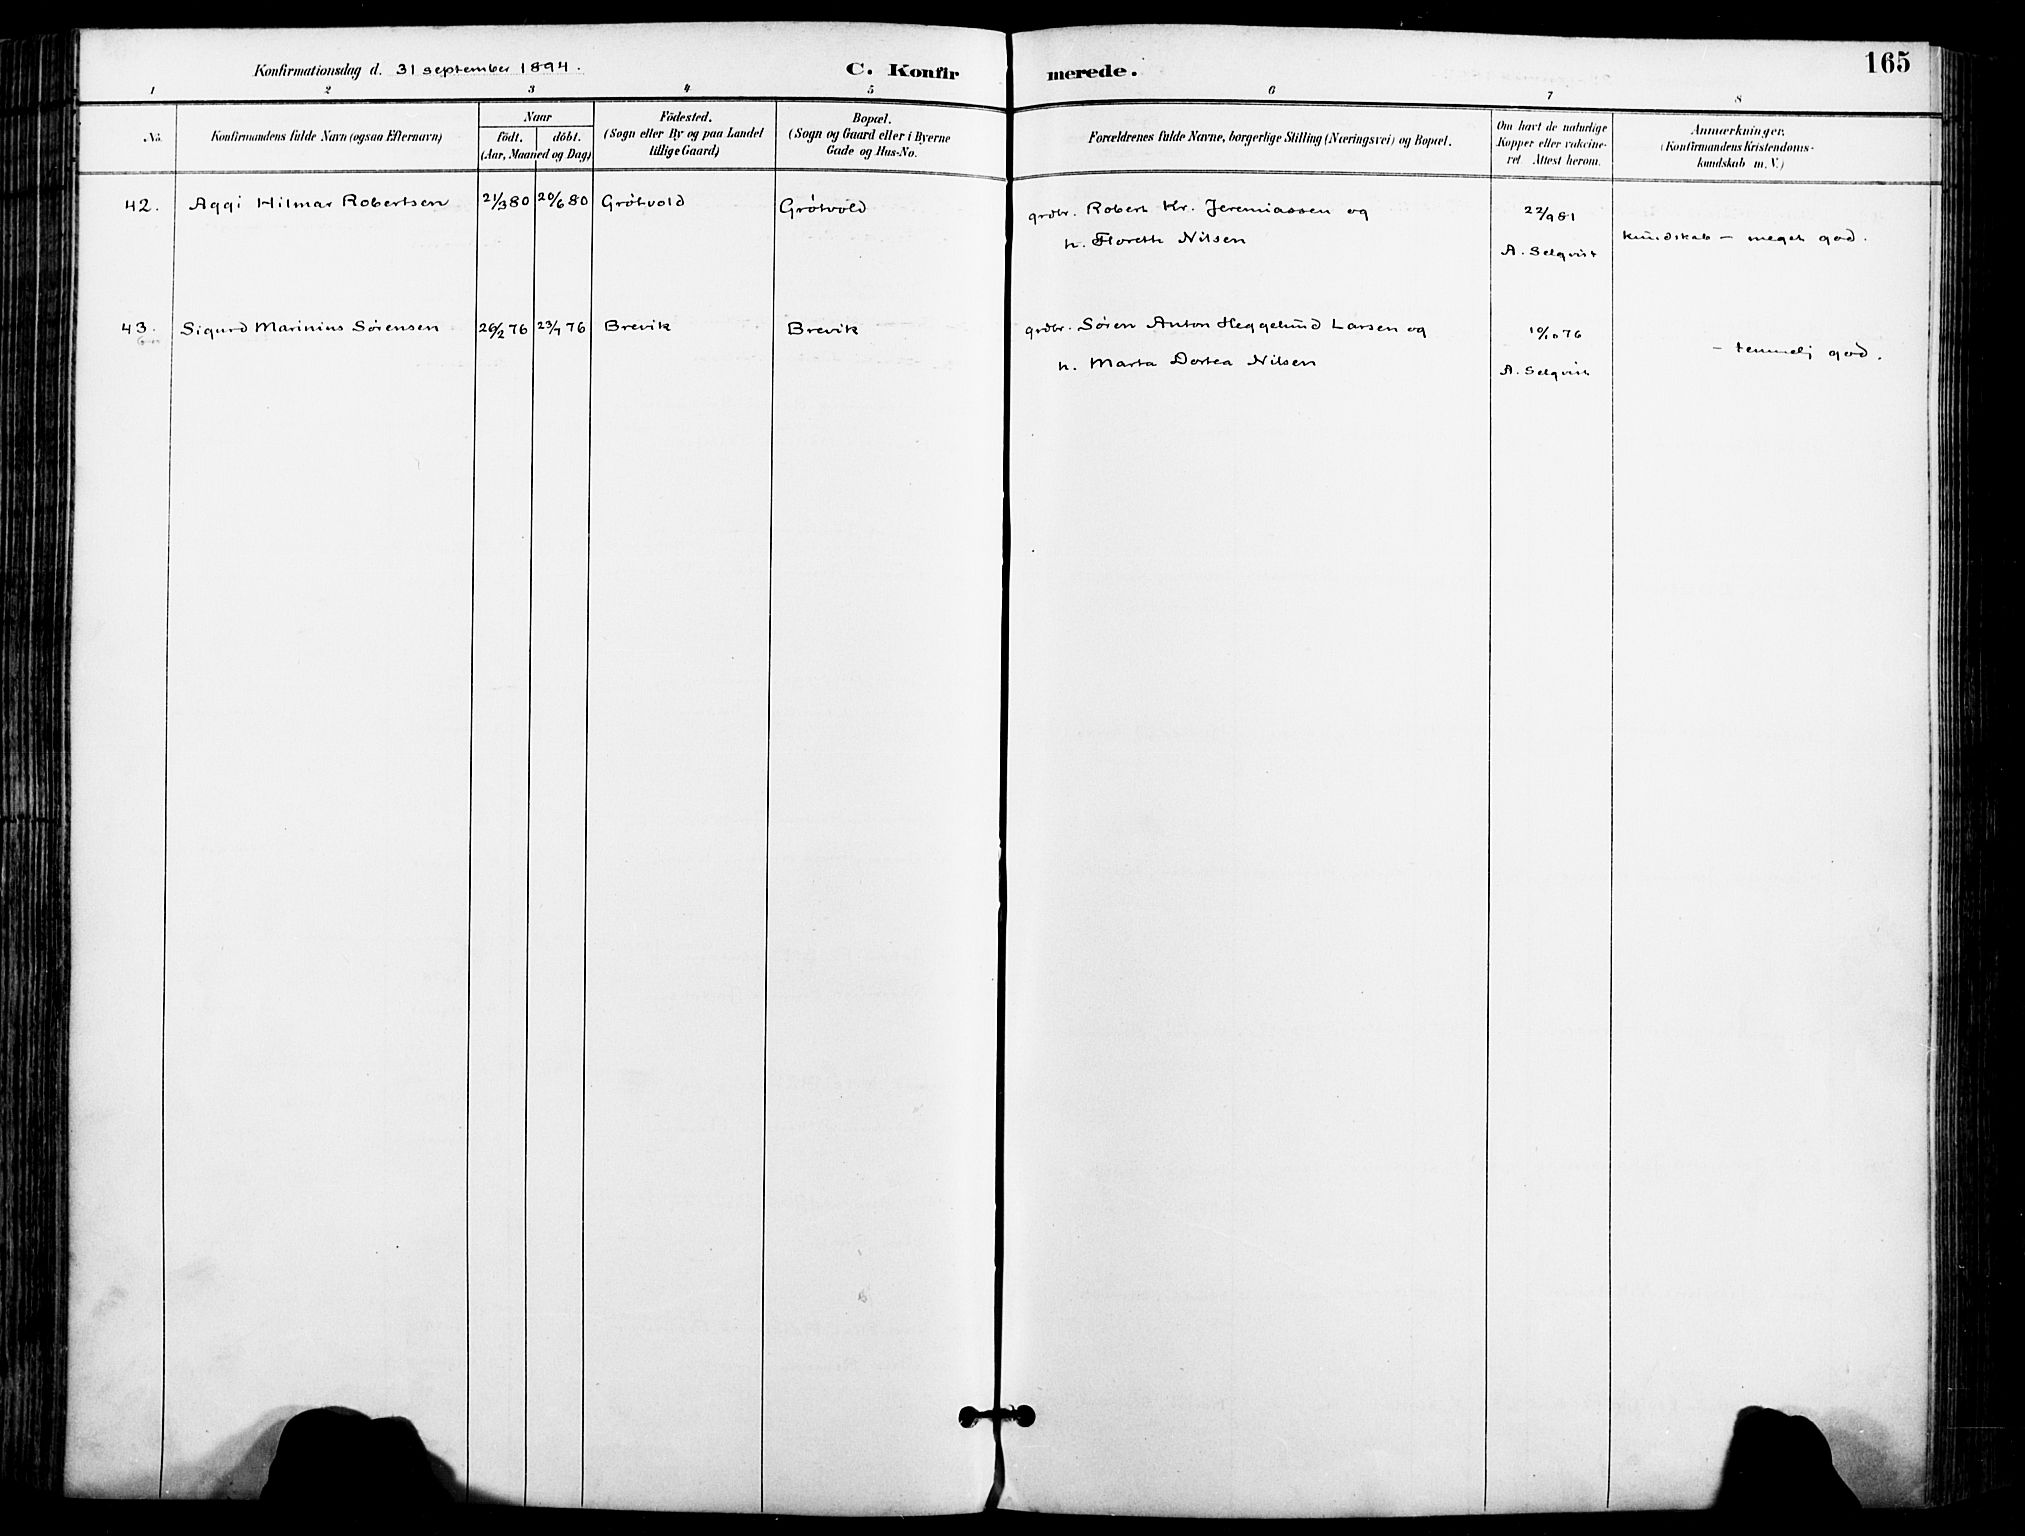 Konfirmationsdag d. 31 september 1894.
C. Konfirmerede.
165
1 2 3 4 5 6 7 8
No.
Konfirmandens fulde Navn (ogsaa Efternavn)
Naar
födt. döbt.
(Aar, Maaned og Dag)
Födested.
(Sogn eller By og paa Landet
tillige Gaard)
Bopæl.
(Sogn og Gaard eller i Byerne
Gade og Hus-No.
Forældrenes fulde Navne, borgerlige Stilling (Næringsvei) og Bopæl.
Om havt de naturlige
Kopper eller vakcine-
ret. Attest herom.
Anmærkninger.
(Konfirmandens Kristendoms-
kundskab m. V.)
42. Aggi Hilmar Robertsen 21/3 80 20/6 80 Grötvold Grötvold grdbr. Robert Kr. Jeremiassen og 22/9 81
h. Floreth Nilsen A. Selqvist kundskab – meget god.
43. Sigurd Marinius Sörensen 26/2 76 23/7 76 Brevik Brevik grdbr. Sören Anton Heggelund Larsen og 10/10 76
h. Marta Dortea Nilsen A. Selqvist – temmelj god.